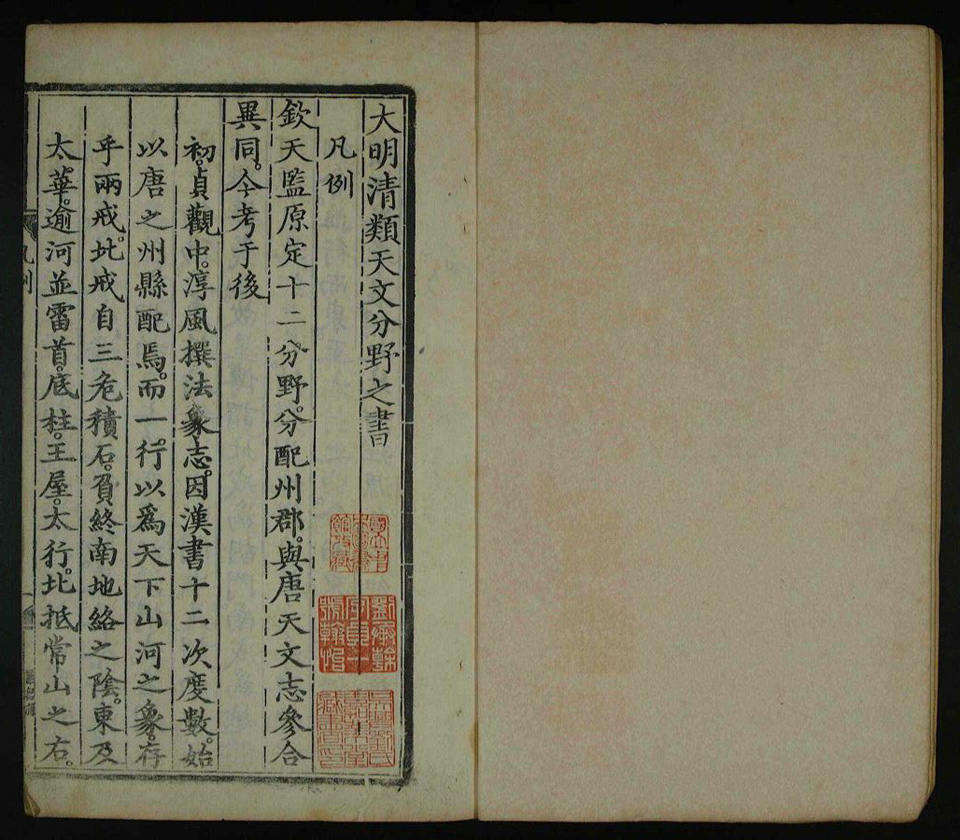 大明清類天文分野之書
凡例
欽天監原定十二分野。分配州郡。與唐天文志參合
異同。今考于後
初。貞觀中。淳風撰法象志。因漢書十二次度數。始
以唐之州縣配焉。而一行以爲天下山河之象。存
乎兩戒。北戒自三危積石。負終南地絡之陰。東及
太華。逾河並雷首。底柱。王屋。太行。北抵常山之右。
凡例
劉承榦
字貞一
號翰怡
吳興劉氏
嘉業堂
藏書印